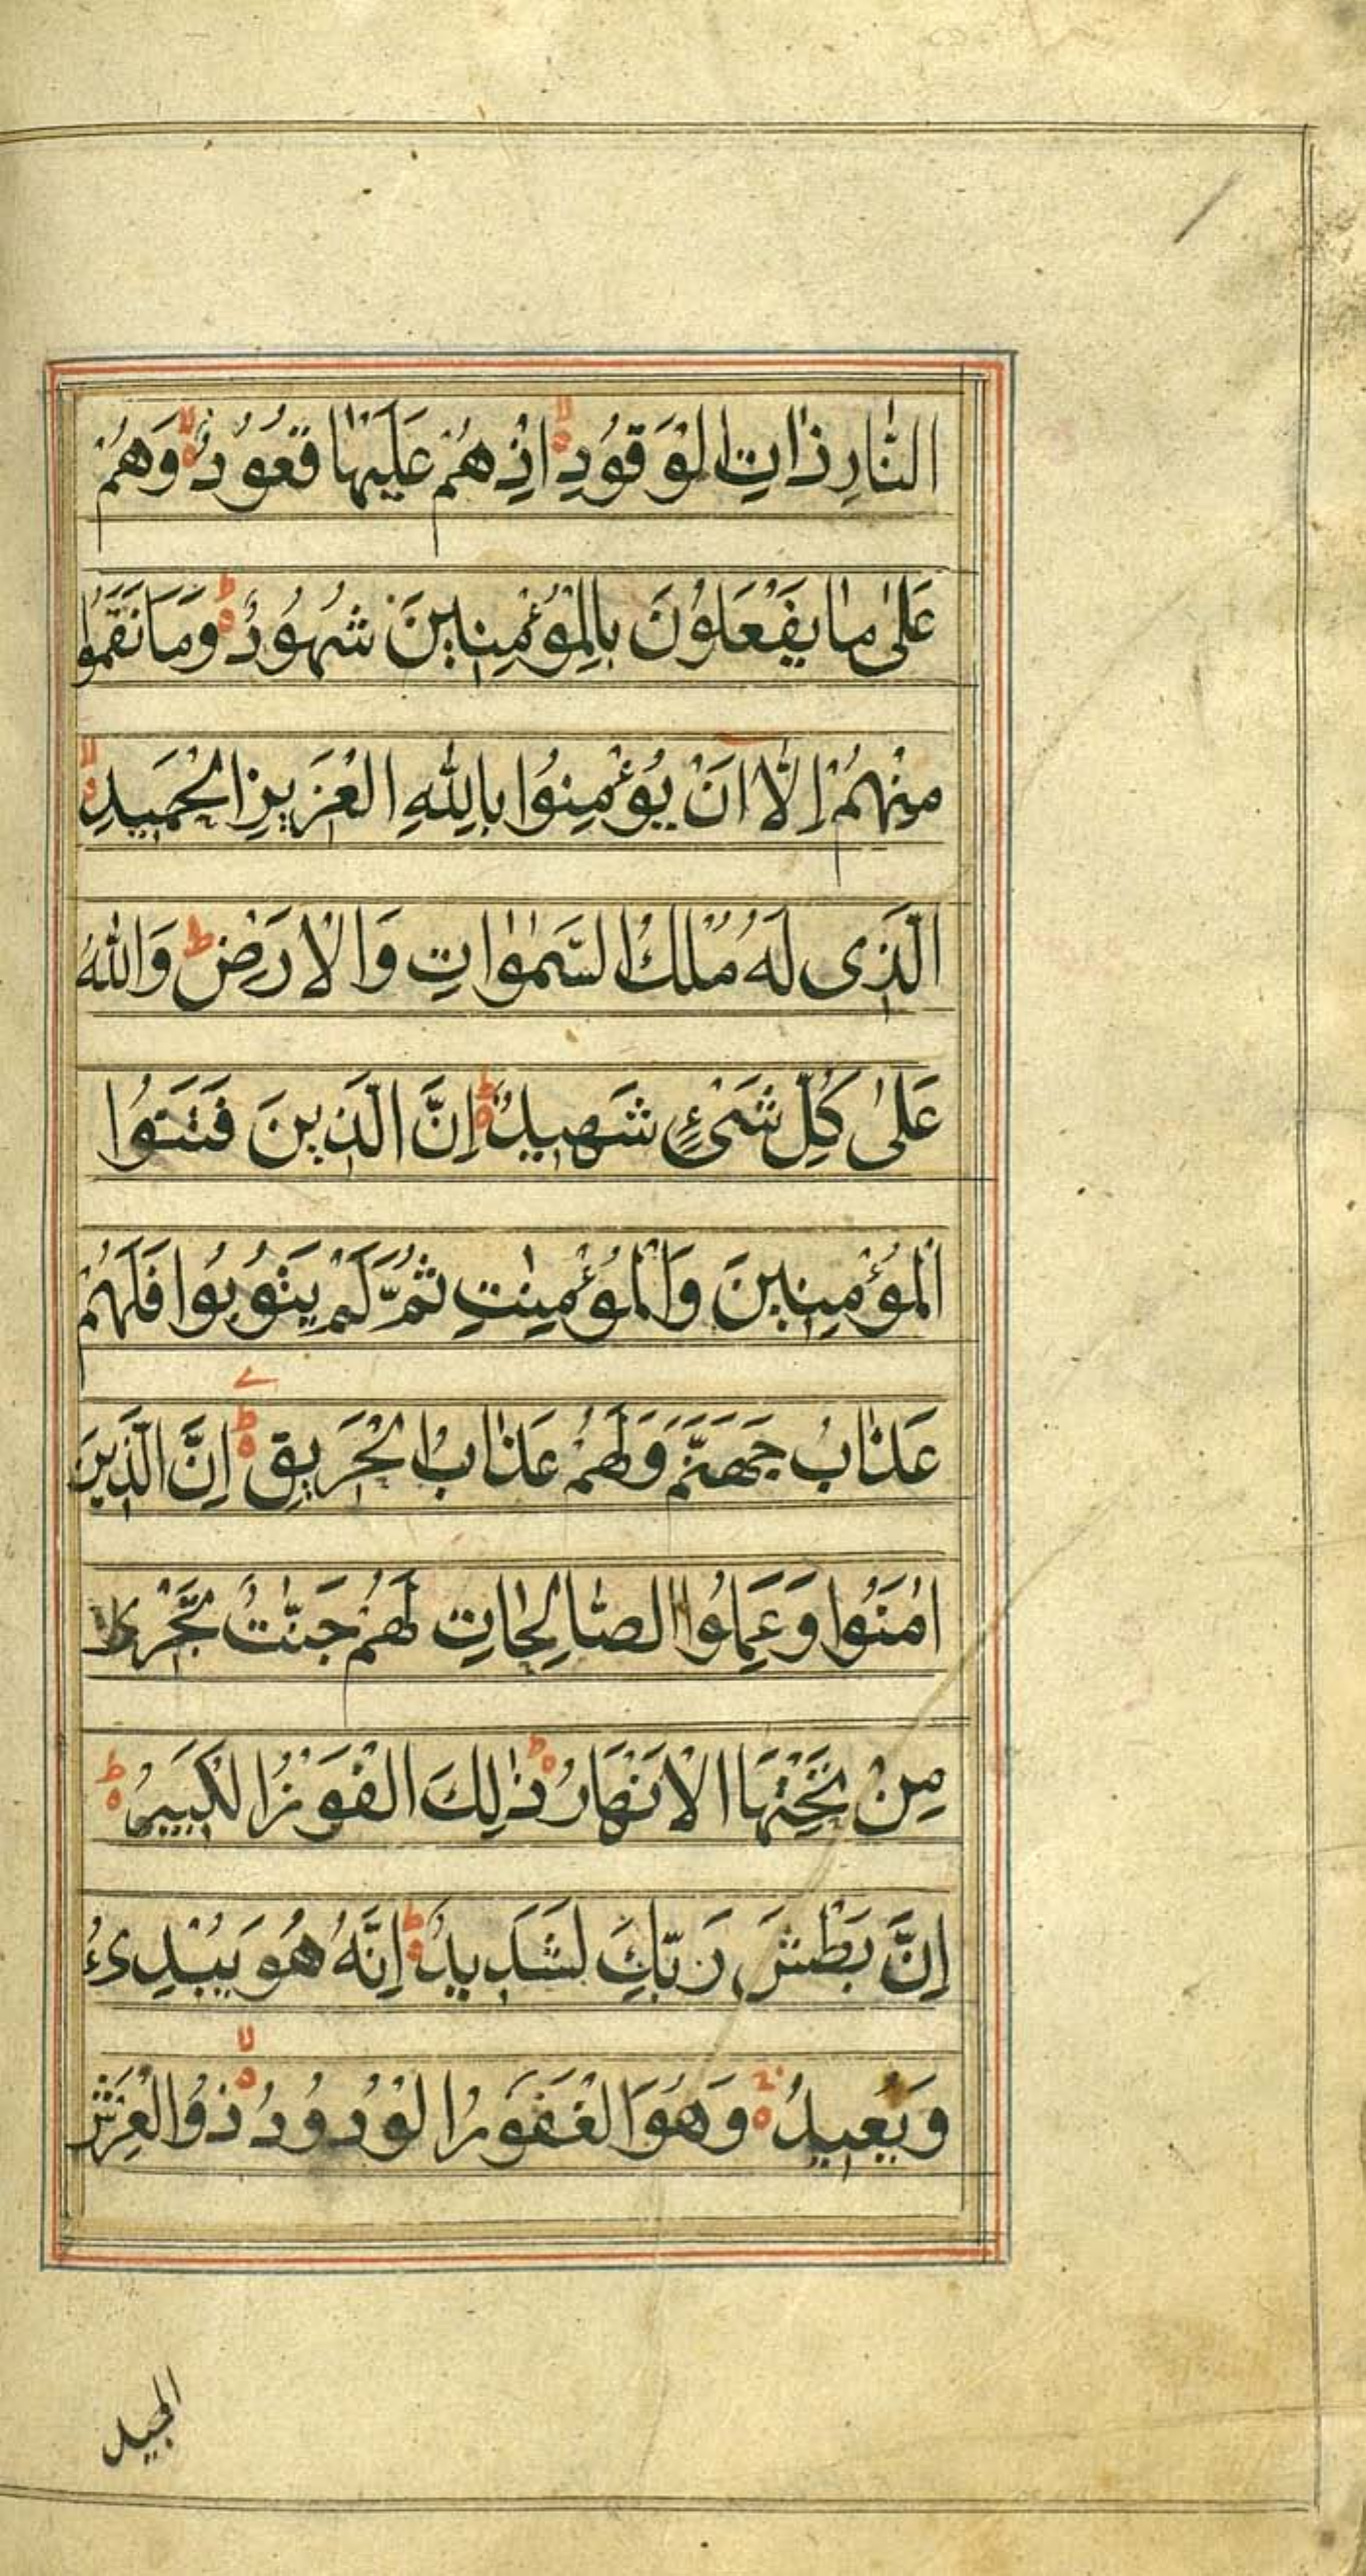 النَّارِ ذَاتِ الْوَقُودِ اِذْ هُمْ عَلَيْهَا قُعُودٌ وَهُمْ
عَلٰى مَا يَفْعَلُوْنَ بِالْمُؤْمِنِينَ شُهُودٌ وَمَا نَقَمُوا
مِنْهُمْ اِلَّا اَنْ يُؤْمِنُوا بِاللّٰهِ الْعَزِيزِ الْحَمِيدِ
الَّذِى لَهُ مُلْكُ السَّمٰوٰاتِ وَالْاَرْضِ ط وَاللّٰهُ
عَلٰى كُلِّ شَىْءٍ شَهِيدٌ اِنَّ الَّذِينَ فَتَنُوا
الْمُؤْمِنِينَ وَالْمُؤْمِنٰتِ ثُمَّ لَمْ يَتُوبُوا فَلَهُمْ
عَذَابُ جَهَنَّمَ وَلَهُمْ عَذَابُ الْحَرِيقِ اِنَّ الَّذِينَ
اٰمَنُوا وَعَمِلُوا الصَّالِحَاتِ لَهُمْ جَنّٰتٌ تَجْرِى
مِنْ تَحْتِهَا الْاَنْهَارُ ذٰلِكَ الْفَوْزُ الْكَبِيرُ
اِنَّ بَطْشَ رَبِّكَ لَشَدِيدٌ اِنَّهُ هُوَ يُبْدِىءُ
وَيُعِيدُ وَهُوَ الْغَفُورُ الْوَدُودُ ذُو الْعَرْشِ
المجيد